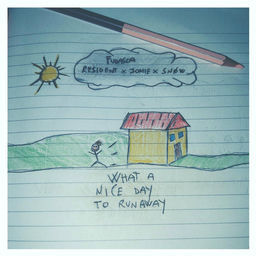 FUNASCA
RESIDENT x JOMIE x SNOW
WHAT A
NICE DAY
TO RUNAWAY